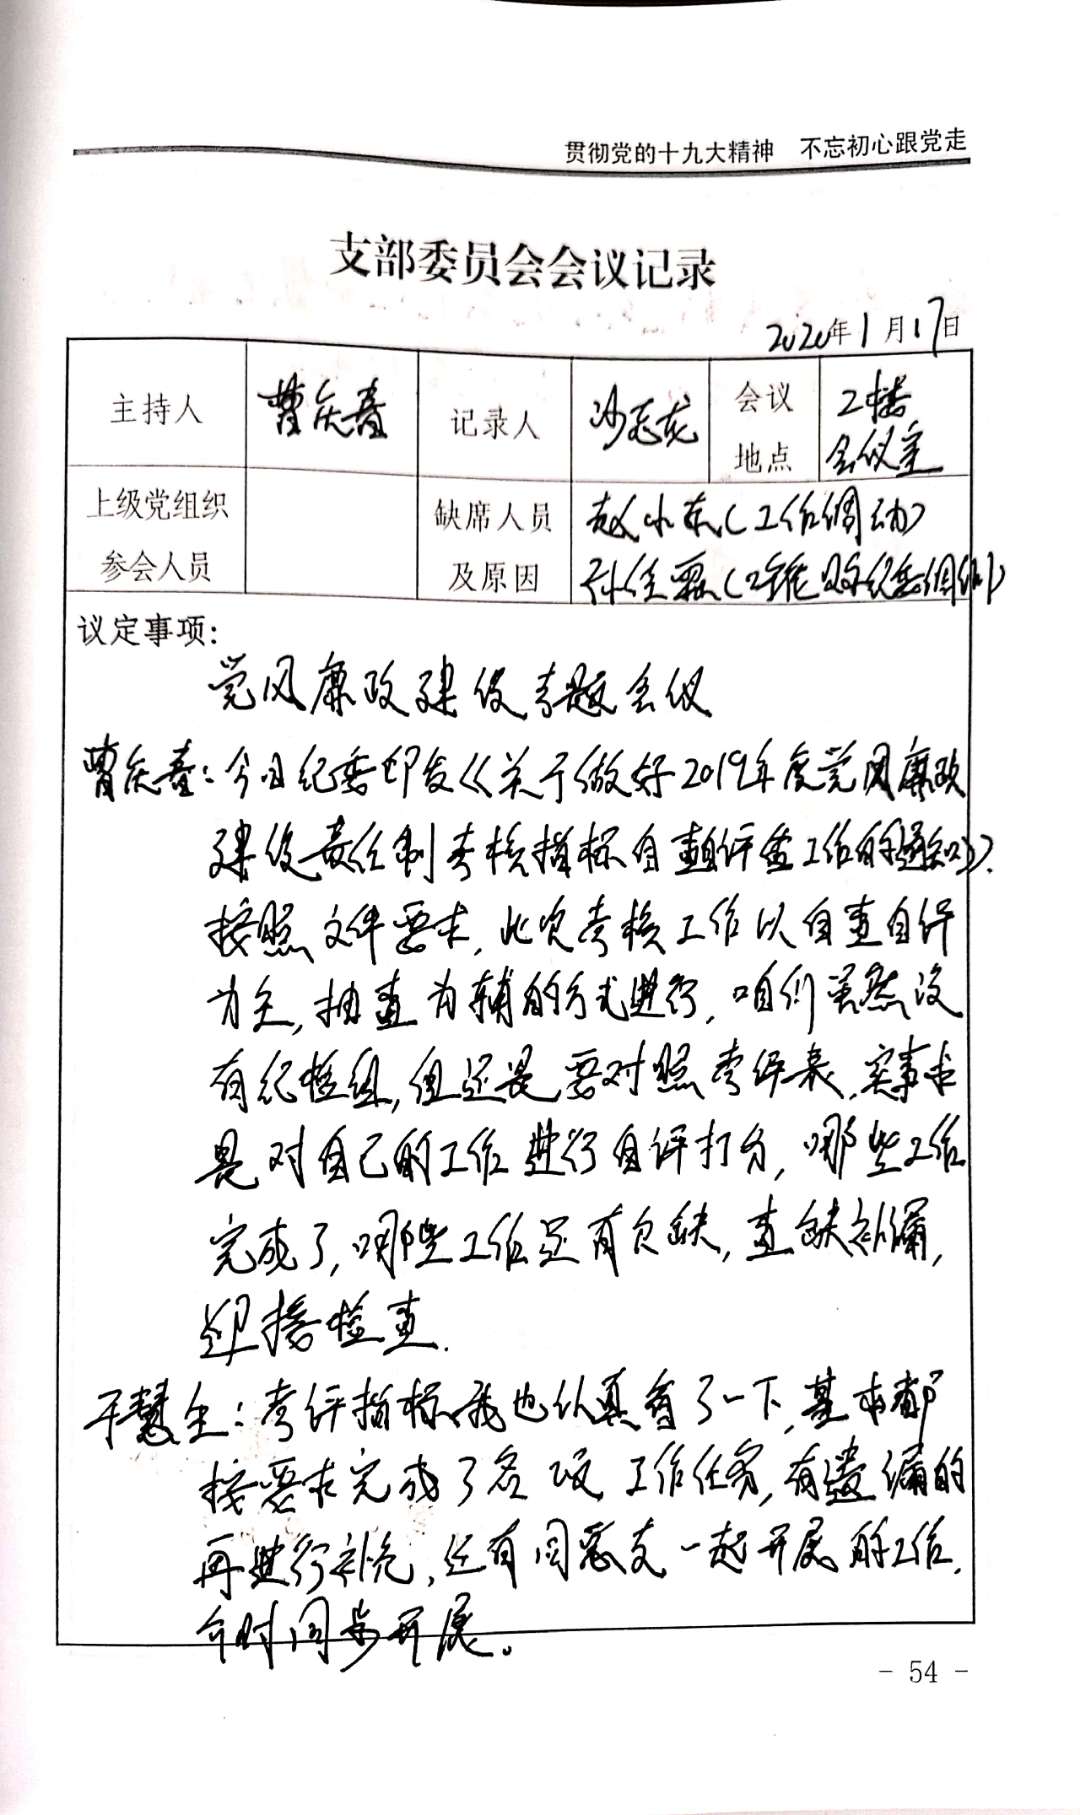 贯彻党的十九大精神 不忘初心跟党走
支部委员会会议记录
2020年1月17日
主持人 曹庆喜 记录人 沙志龙 会议地点 2楼会议室
上级党组织参会人员 缺席人员及原因 赵小东(工作调动)
孙佳霖(纪委
议定事项:
党风廉政建设专题会议
曹庆喜:今日纪委印发《关于做好2019年度党风廉政
建设责任制考核指标自查自评工作的通知》.
按照文件要求,此次考核工作以自查自评
为主,抽查为辅的方式进行,咱们虽然没
有纪检组,但还是要对照考评表,实事求
是对自己的工作进行自评打分,哪些工作
完成了,哪些工作还有欠缺,查缺补漏,
迎接检查.
于慧生:考评指标我也认真看了一下,基本都
按要求完成了各项工作任务,有遗漏的
再进行补充,还有同 支一起开展的工作,
个时间同步开展。
- 54 -